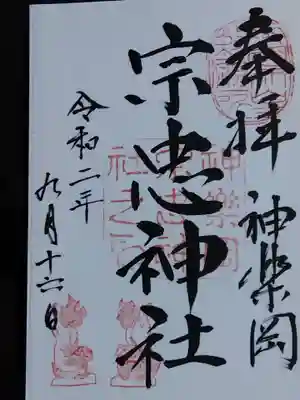 奉拝
神楽岡
宗忠神社
令和二年
九月十六日